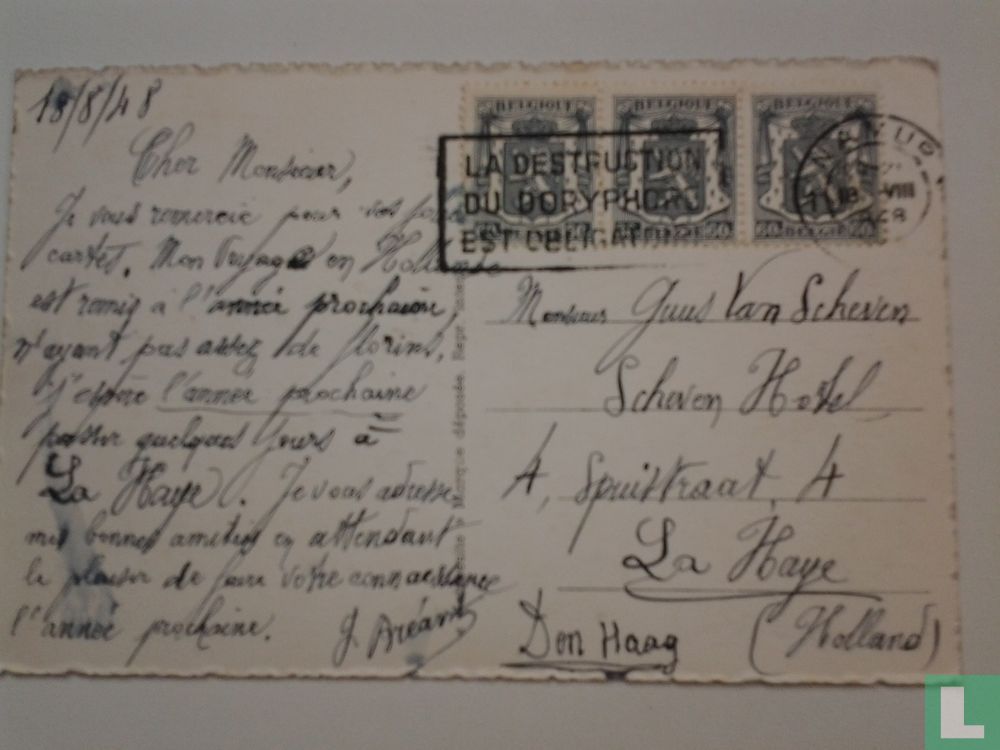 18/8/48
Cher Monsieur,
Je vous remercie pour vos
cartes. Mon Voyage en Hollande
est remis à l'année prochaine,
n'ayant pas assez de florins,
j'espère l'année prochaine
passer quelques jours à
La Haye. Je vous adresse
mes bonnes amitiés en attendant
le plaisir de faire votre connaissance
l'année prochaine.
BELGIQUE BELGIQUE BELGIQUE
BELGIË
LA DESTRUCTION
DU DORYPHORE
EST OBLIGATOIRE
NAMUR
VIII
Marque déposée. Repr.
Monsieur Guus Van Scheven
Scheven Hotel
4, Spuistraat, 4
La Haye
Den Haag (Holland)
L